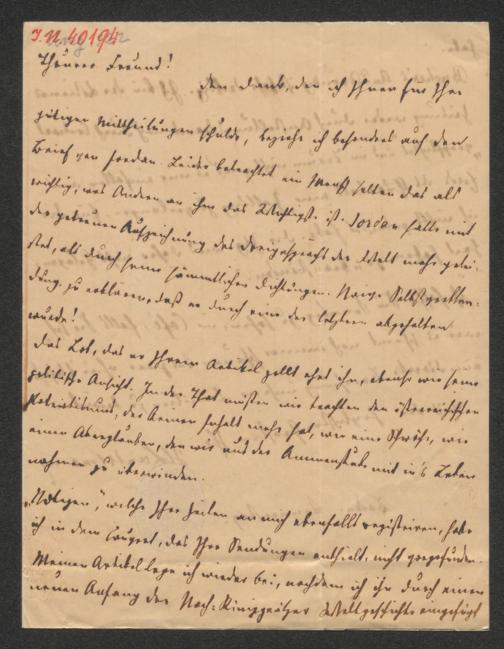 J.N. 40194
Theurer Freund!
Den Dank, den ich Ihnen für Ihre
gütigen Mittheilungen schulde, beziehe ich besonders auf den
Brief von Jordan. Leider betrachtet ein Mensch selten das als
wichtig, was Andern an ihm das Wichtigste ist. Jordan hätte mit
der getreuen Aufzeichnung des Dreigesprächs der Welt mehr gelei-
stet, als durch seine sämmtlichen Dichtungen. Naive Selbstverblen-
dung zu erklären, daß er durch eine der letztern abgehalten
wurde!
Das Lob, das er Ihrem Artikel zollt ehrt ihn, ebenso wie seine
politische Ansicht. In der That müssen wir trachten den österreichischen
Patriotismus, der keinen Inhalt mehr hat, wie eine Schwäche, wie
einen Aberglauben, den wir aus der Ammenstube mit in's Leben
nahmen zu überwinden.
"Notizen", welche Ihre Zeilen an mich ebenfalls registriren, habe
ich in dem Couvert, das Ihre Sendungen enthielt, nicht vorgefunden.
Meinen Artikel lege ich wieder bei, nachdem ich ihn durch einen
neuen Anfang der Nach-Königgrätzer Weltgeschichte eingefügt